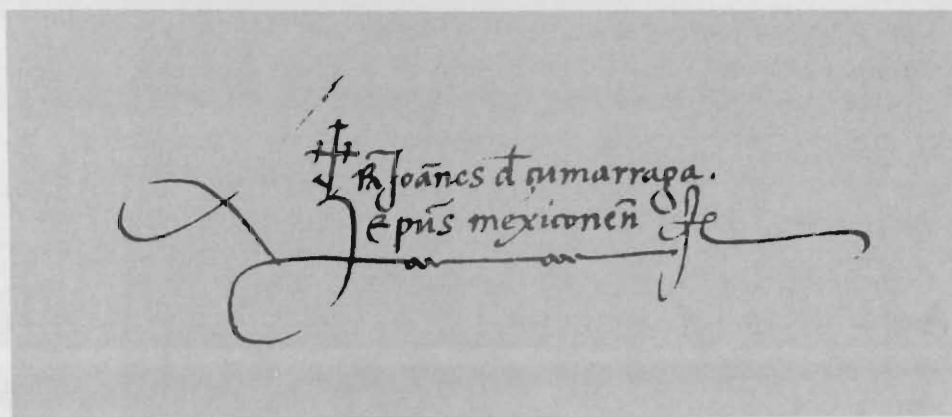 fr Joães d çumarraga.
Epũs mexiconeñ